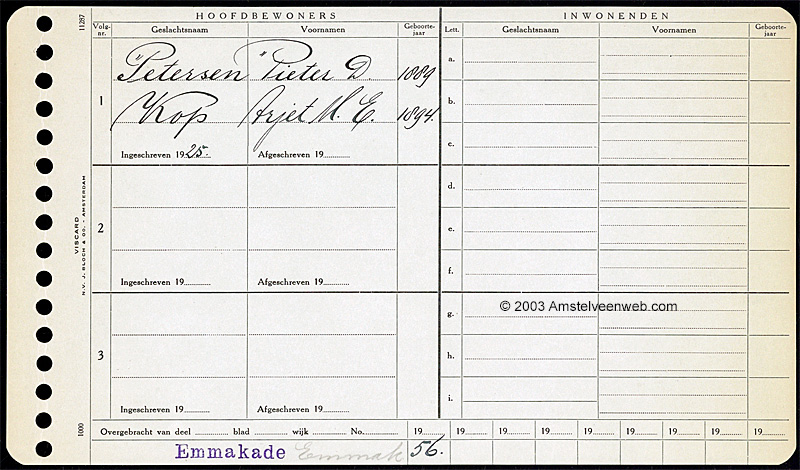 HOOFDBEWONERS INWONENDEN
11287 Volg-nr. Geslachtsnaam Voornamen Geboorte-jaar Lett. Geslachtsnaam Voornamen Geboorte-jaar
Petersen Pieter D. 1889 a.
1 Kop M. E. 1894. b.
Ingeschreven 1925. Afgeschreven 19 c.
d.
2 e.
Ingeschreven 19 Afgeschreven 19 f.
© 2003 Amstelveenweb.com
g.
3 h.
Ingeschreven 19 Afgeschreven 19 i.
VISCARD
N.V. J. BLOCH & CO. - AMSTERDAM
1000
Overgebracht van deel blad wijk No. 19 19 19 19 19 19 19 19 19
Emmakade Emmak 56.